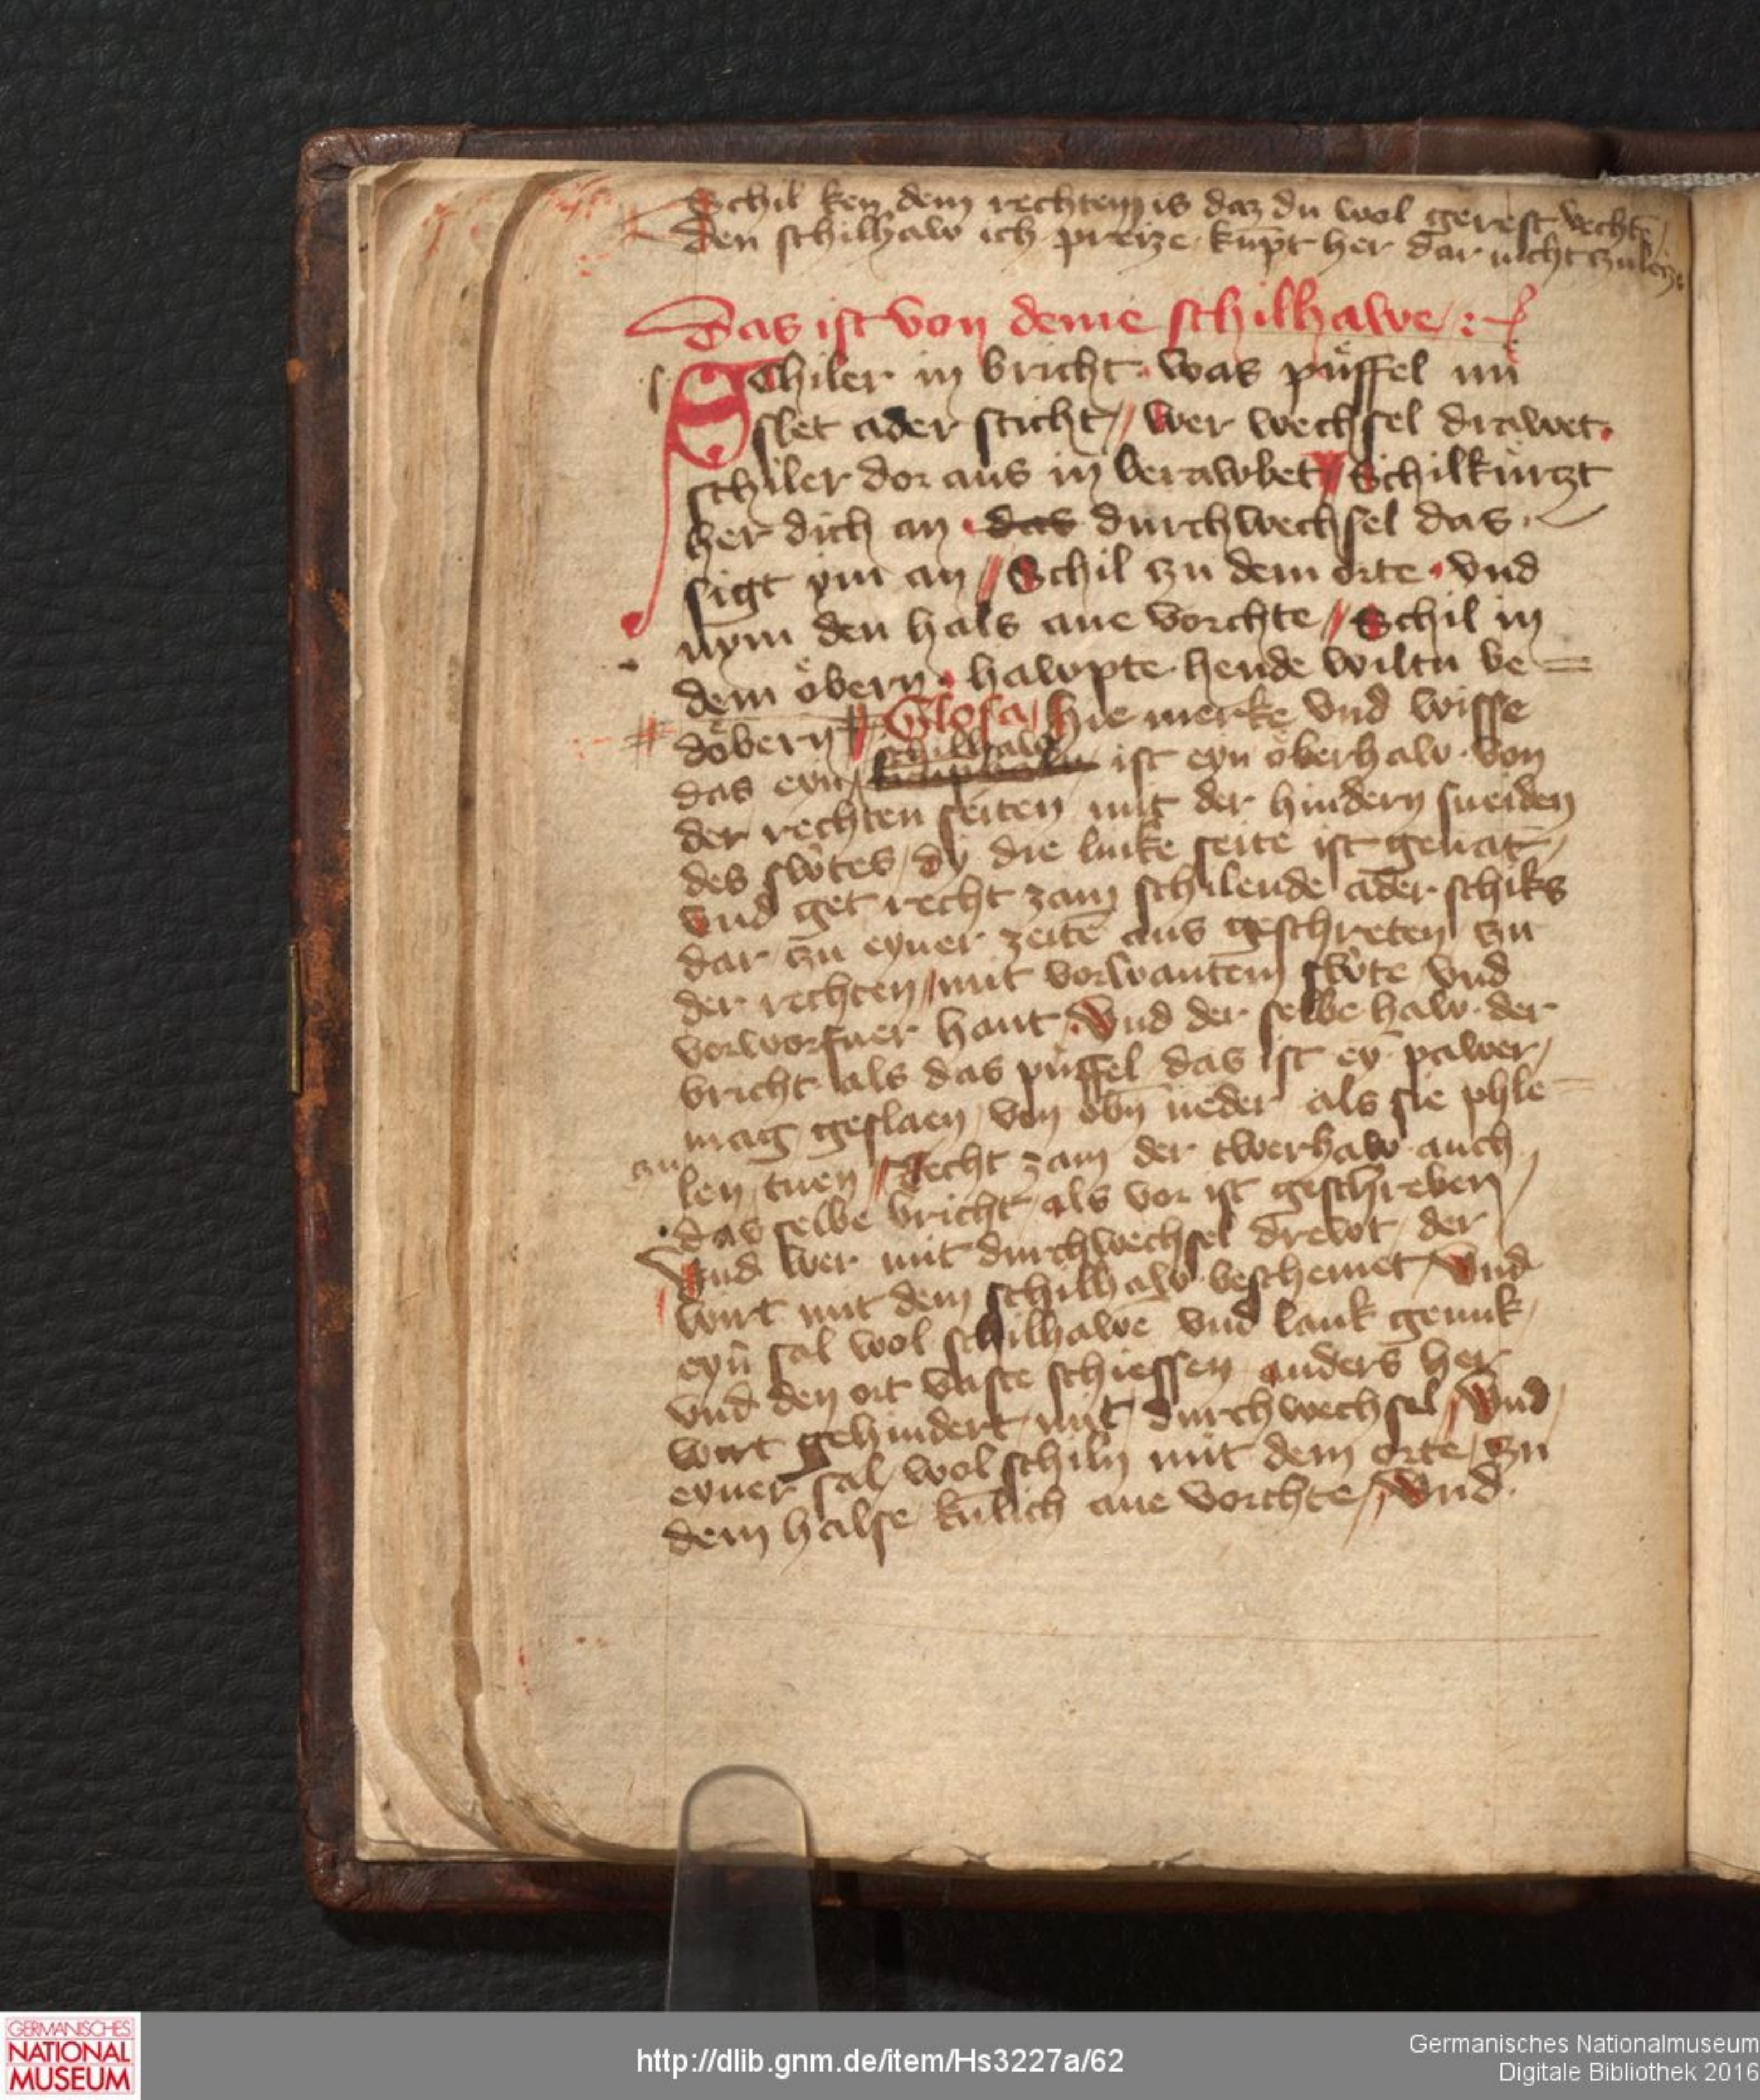 Schil ken dem rechten is daz du wol gerest vechtē
Den schilhaw ich preize kūpt her dar nicht zu leize
Das ist von deme schilhawe
SChiler in bricht was püffel nü
slet ader sticht // Wer wechsel drawet
schiler dor aus in berawbet // Schilkürtzt
her dich an das durchwechsel das
sigt ym an // Schil zu dem orte vnd
nym den hals ane vorchte // Schil in
dem öbern hawpte hende wiltu be=
döbern // Glosa / hie merke vnd wisse
das eyn / schilhaw ist eyn öberhaw von
der rechten seiten mit der hindern sneiden
des sw̄tes / dy die linke seite ist genāt /
vnd get recht zam schilende ader schiks
dar zu eyner zeitē aus geschreten zu
der rechten / mit vorwantem sw̄te vnd
vorworfner hant / Vnd der selbe haw der
bricht als das püffel das ist eȳ pawer /
mag geslaen / von obn̄ neder als sie phle=
zu
len tuen // Recht zam der twerhaw auch
das selbe bricht / als vor ist geschreben /
Vnd wer mit durchwechsel drewt / der
wirt mit dem schilhaw beschemet / Vnd
eyn̄ sal wol schilhawē vnd lank genuk /
vnd den ort vaste schiessen anders her
wirt gehindert mit durchwechsel // Vnd
eyner sal wol schiln mit dem orte / zu
dem halse kūlich ane vorchte // Vnd
GERMANISCHES
NATIONAL
MUSEUM
http://dlib.gnm.de/item/Hs3227a/62
Germanisches Nationalmuseum
Digitale Bibliothek 2016